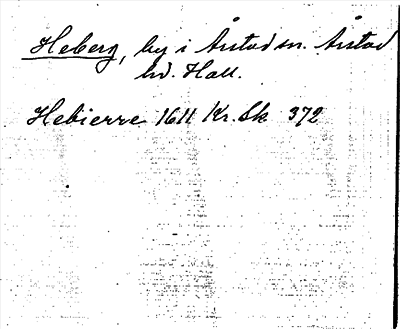 Heberg, by i Årstad sn. Årstad
hd. Hall.
Hebierre 1611 Kr. Sk 372